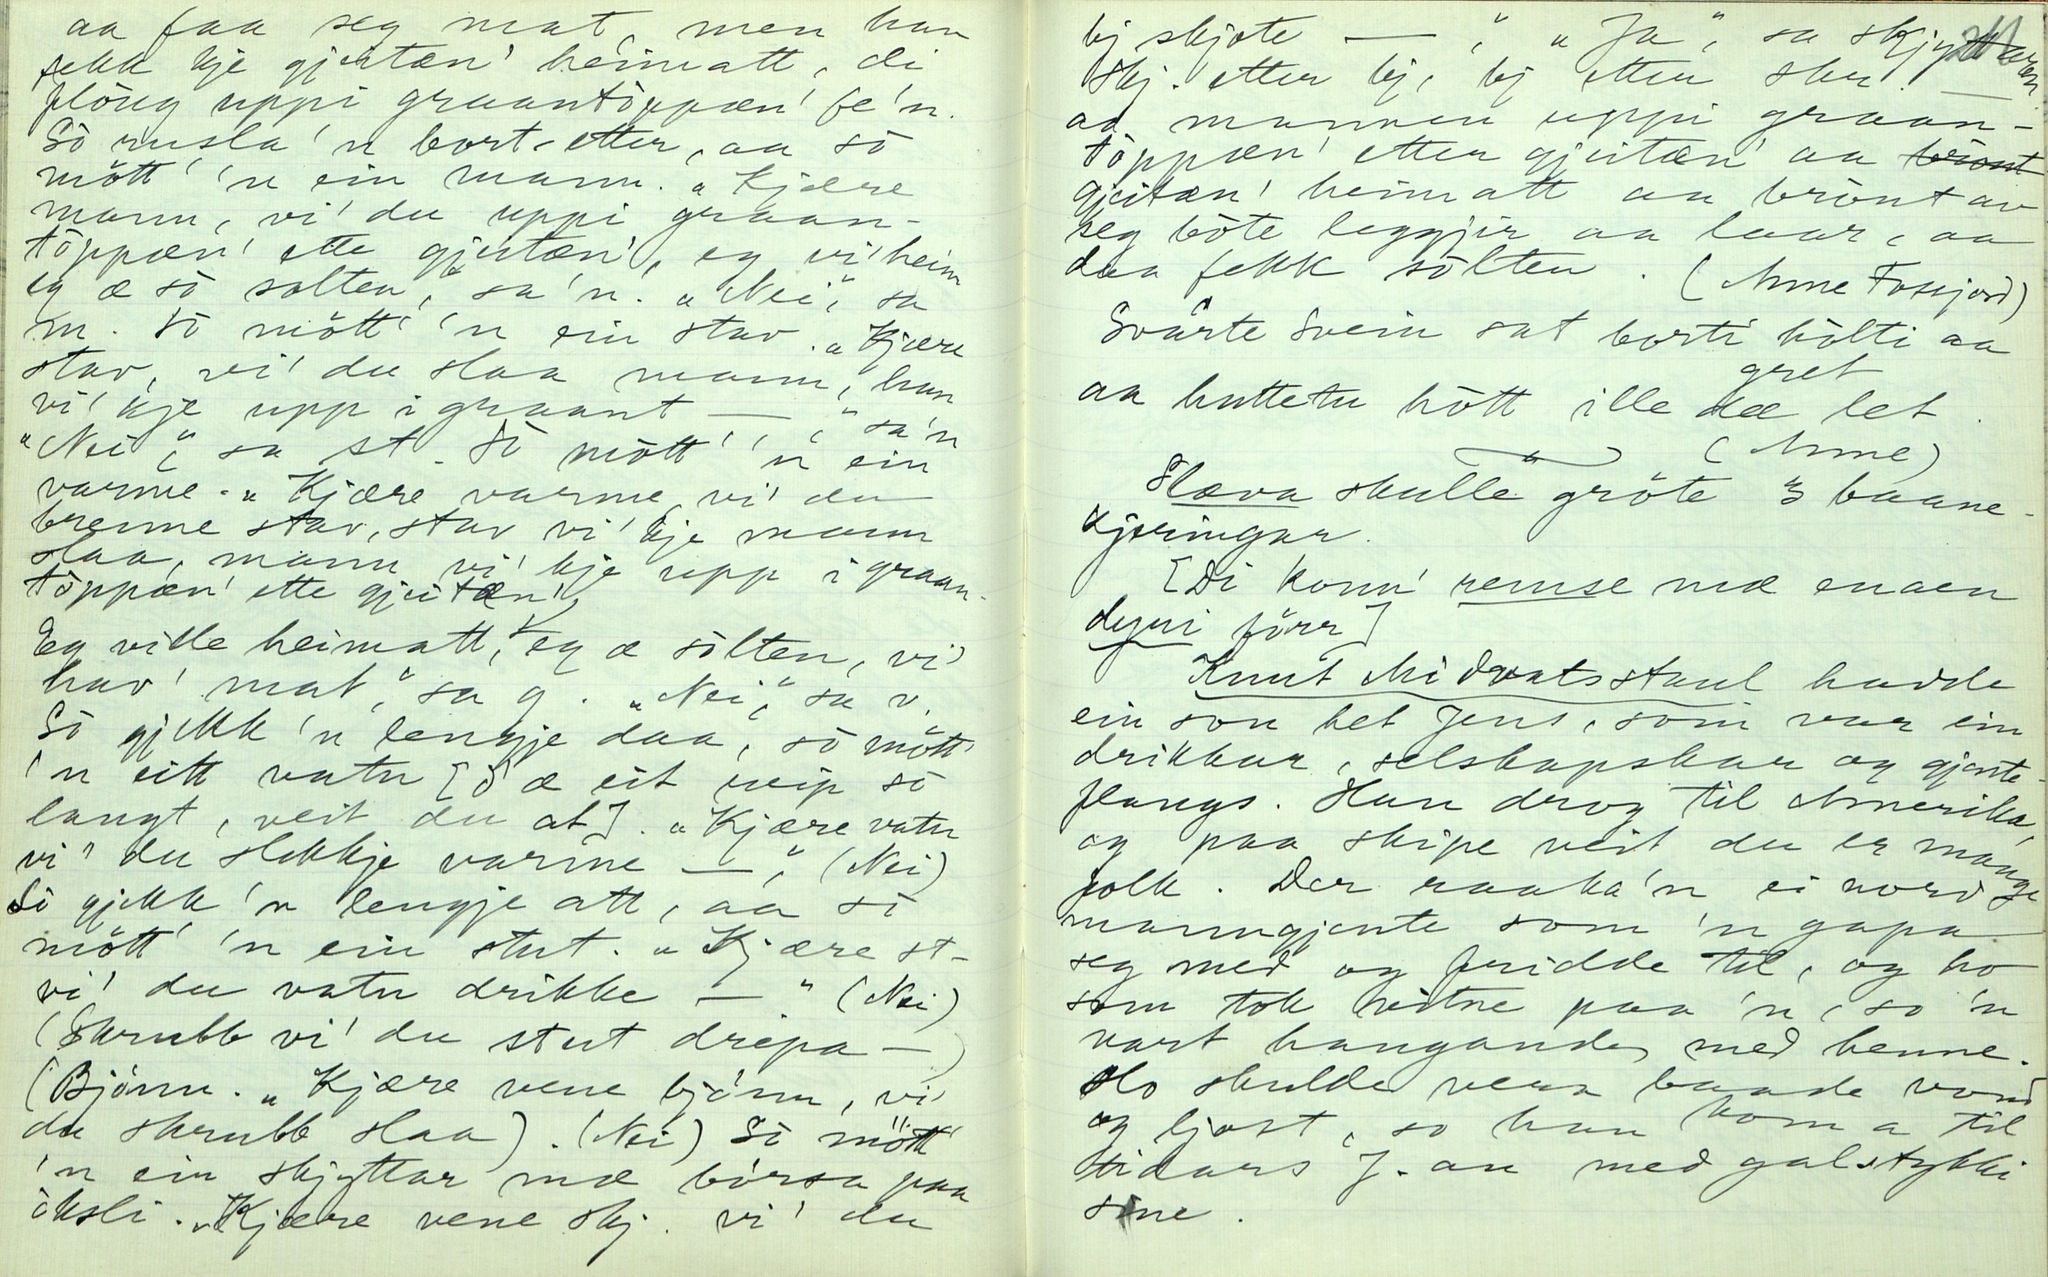 aa faa seg mat, men han
fekk kje gjeitæn' heimatt, di
flöug uppi graantöppæn' fe'n.
Sò rusla 'n bort-etter, aa sò
mött' 'n ein mann. „Kjære
mann, vi' du uppi graan-
töppæn' ette gjeitæn', eg vi' heim
eg æ sò solten," sa'n. „Nei", sa
m. Sò mött' 'n ein stav. „Kjære
stav, vi' du slaa mann, han
vi' kje upp i graant — ", sa'n
„Nei", sa st. Sò mött' 'n ein
varme. „Kjære varme, vi' du
brenne stav, stav vi' kje mann
slaa, mann vi' kje upp i graan-
töppæn' ette gjeitæn'
Eg ville heimatt, eg æ sòlten, vi'
hav' mat", sa g. „Nei", sa v.
Sò gjekk 'n lengje daa, sò mött'
'n eitt vatn [d' æ eit veip sò
langt, veit du at]. „Kjære vatn
vi' du slekkje varme — ", (Nei)
Sò gjekk 'n lengje att, aa sò
mött' 'n ein stut. „Kjære st-
vi' du vatn drikke — " (Nei)
(Skrubb vi' du stut drepa — )
(Björnn. „Kjære vene björnn, vi'
du skrubb slaa). (Nei) Sò mött'
'n ein skjyttar mæ börsa paa
òksli. „Kjære vene skj. vi' du
bj skjote — ", „Ja", sa skjyttaren.
Skj. etter bj, bj etter skr. —
aa mannen uppi graan-
töppæn' etter gjeitæn' aa bròut
gjeitæn' heimatt aa bròut av
seg böte leggjir aa laar, aa
daa fekk sòlten. (Anne Fosejord)
Svarte Svein sat borti hòlti aa
gret
aa huttetu hòtt ille dæ let.
(Anne)
Slæva skulle gröte 3 baane-
kjeringar.
[Di konn' remse mæ enaen
dyni förr]
Knut Midvatsstaul hadde
ein son het Jens, som var ein
drikkar, selskapskar og gjente-
flangs. Han drog til Amerika,
og paa skipe veit du er mange
folk. Der raaka'n ei nord
manngjente som 'n gapa
seg med og fridde til, og ho
som tok vitne paa 'n, so 'n
vart hangande med henne.
Ho skulde vera baade vond
og ljost, so han kom a til
tidars J. an med galstykki
sine.